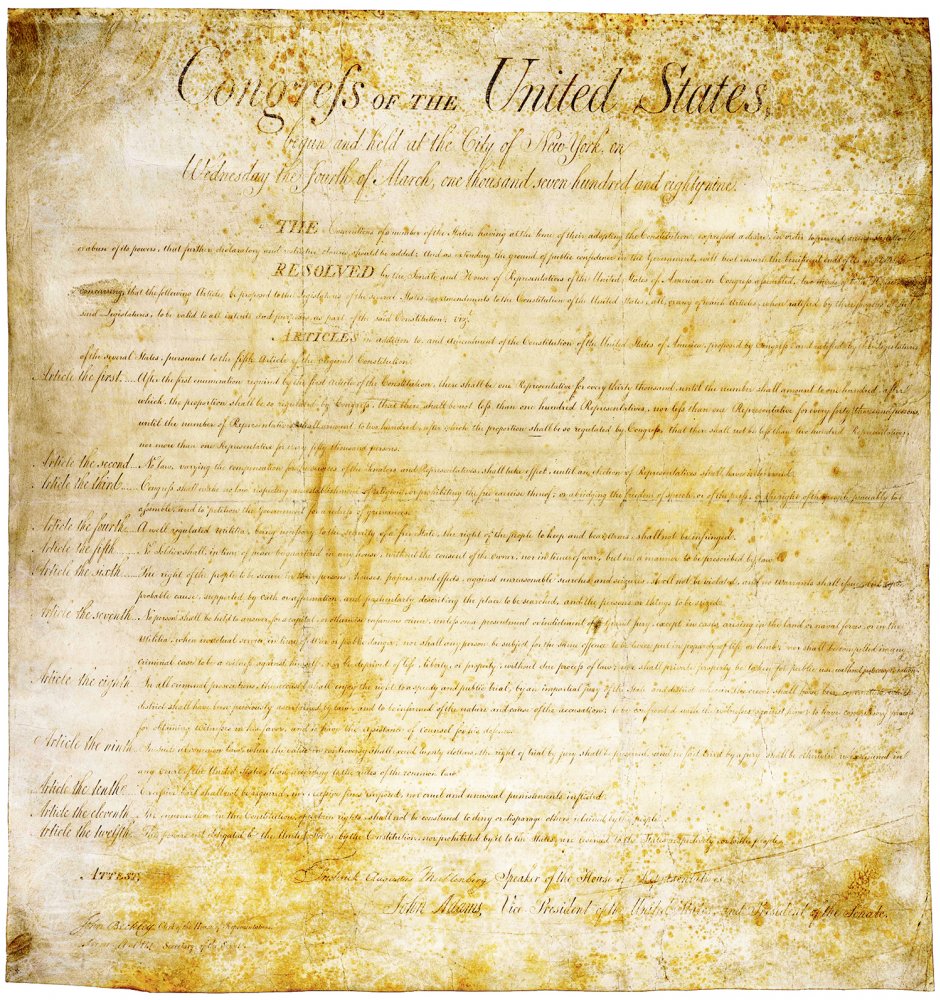 Congreſs OF THE United States,
begun and held at the City of New-York, on
Wednesday the fourth of March, one thousand seven hundred and eighty nine.
THE Conventions of a number of the States, having at the time of their adopting the Constitution, expressed a desire, in order to prevent
or abuse of its powers, that further declaratory and restrictive clauses should be added: And as extending the ground of public confidence in the Government, will best ensure the beneficent ends of
RESOLVED by the Senate and House of Representatives of the United States of America, in Congress aſsembled, two thirds of
concurring, that the following Articles be proposed to the Legislatures of the several States, as amendments to the Constitution of the United States, all, or any of which Articles, when ratified by three fourths of
said Legislatures, to be valid to all intents and purposes, as part of the said Constitution; viz.
ARTICLES in addition to, and Amendment of the Constitution of the United States of America, proposed by Congress and ratified by the Legislatures
of the several States, pursuant to the fifth Article of the original Constitution.
Article the first.... After the first enumeration required by the first Article of the Constitution, there shall be one Representative for every thirty thousand, until the number shall amount to one hundred, after
which, the proportion shall be so regulated by Congress, that there shall be not leſs than one hundred Representatives, nor leſs than one Representative for every forty thousand persons,
until the number of Representatives shall amount to two hundred, after which the proportion shall be so regulated by Congress, that there shall not be leſs than two hundred Representatives,
nor more than one Representative for every fifty thousand persons.
Article the second... No law, varying the compensation for the services of the Senators and Representatives, shall take effect, until an election of Representatives shall have intervened.
Article the third..... Congress shall make no law respecting an establishment of religion, or prohibiting the free exercise thereof; or abridging the freedom of speech, or of the preſs; or the right of the people peaceably to
aſsemble, and to petition the Government for a redreſs of grievances.
Article the fourth... A well regulated Militia, being neceſsary to the security of a free State, the right of the people to keep and bear Arms, shall not be infringed.
Article the fifth..... No Soldier shall, in time of peace be quartered in any house, without the consent of the owner, nor in time of war, but in a manner to be prescribed by law.
Article the sixth..... The right of the people to be secure in their persons, houses, papers, and effects, against unreasonable searches and seizures, shall not be violated, and no Warrants shall iſsue, but upon
probable cause, supported by oath or affirmation, and particularly describing the place to be searched, and the persons or things to be seized.
Article the seventh. No person shall be held to answer for a capital, or otherwise infamous crime, unleſs on a presentment or indictment of a Grand Jury, except in cases arising in the land or naval forces, or in the
Militia, when in actual service in time of War or public danger; nor shall any person be subject for the same offence to be twice put in jeopardy of life or limb; nor shall be compelled in any
criminal case to be a witneſs against himself, nor be deprived of life, liberty, or property, without due proceſs of law; nor shall private property be taken for public use without just compensation.
Article the eighth. In all criminal prosecutions, the accused shall enjoy the right to a speedy and public trial, by an impartial jury of the State and district wherein the crime shall have been committed, which
district shall have been previously ascertained by law, and to be informed of the nature and cause of the accusation; to be confronted with the witneſses against him; to have compulsory proceſs
for obtaining witneſses in his favor, and to have the aſsistance of Counsel for his defence.
Article the ninth. In suits at common law, where the value in controversy shall exceed twenty dollars, the right of trial by jury shall be preserved, and no fact tried by a jury shall be otherwise re-examined in
any Court of the United States, than according to the rules of the common law.
Article the tenth. Exceſsive bail shall not be required, nor exceſsive fines imposed, nor cruel and unusual punishments inflicted.
Article the eleventh. The enumeration in the Constitution, of certain rights, shall not be construed to deny or disparage others retained by the people.
Article the twelfth. The powers not delegated to the United States by the Constitution, nor prohibited by it to the States, are reserved to the States respectively, or to the people.
ATTEST,
Frederick Augustus Muhlenberg Speaker of the House of Representatives
John Adams, Vice-President of the United States, and President of the Senate.
John Beckley, Clerk of the House of Representatives
Secretary of the Senate